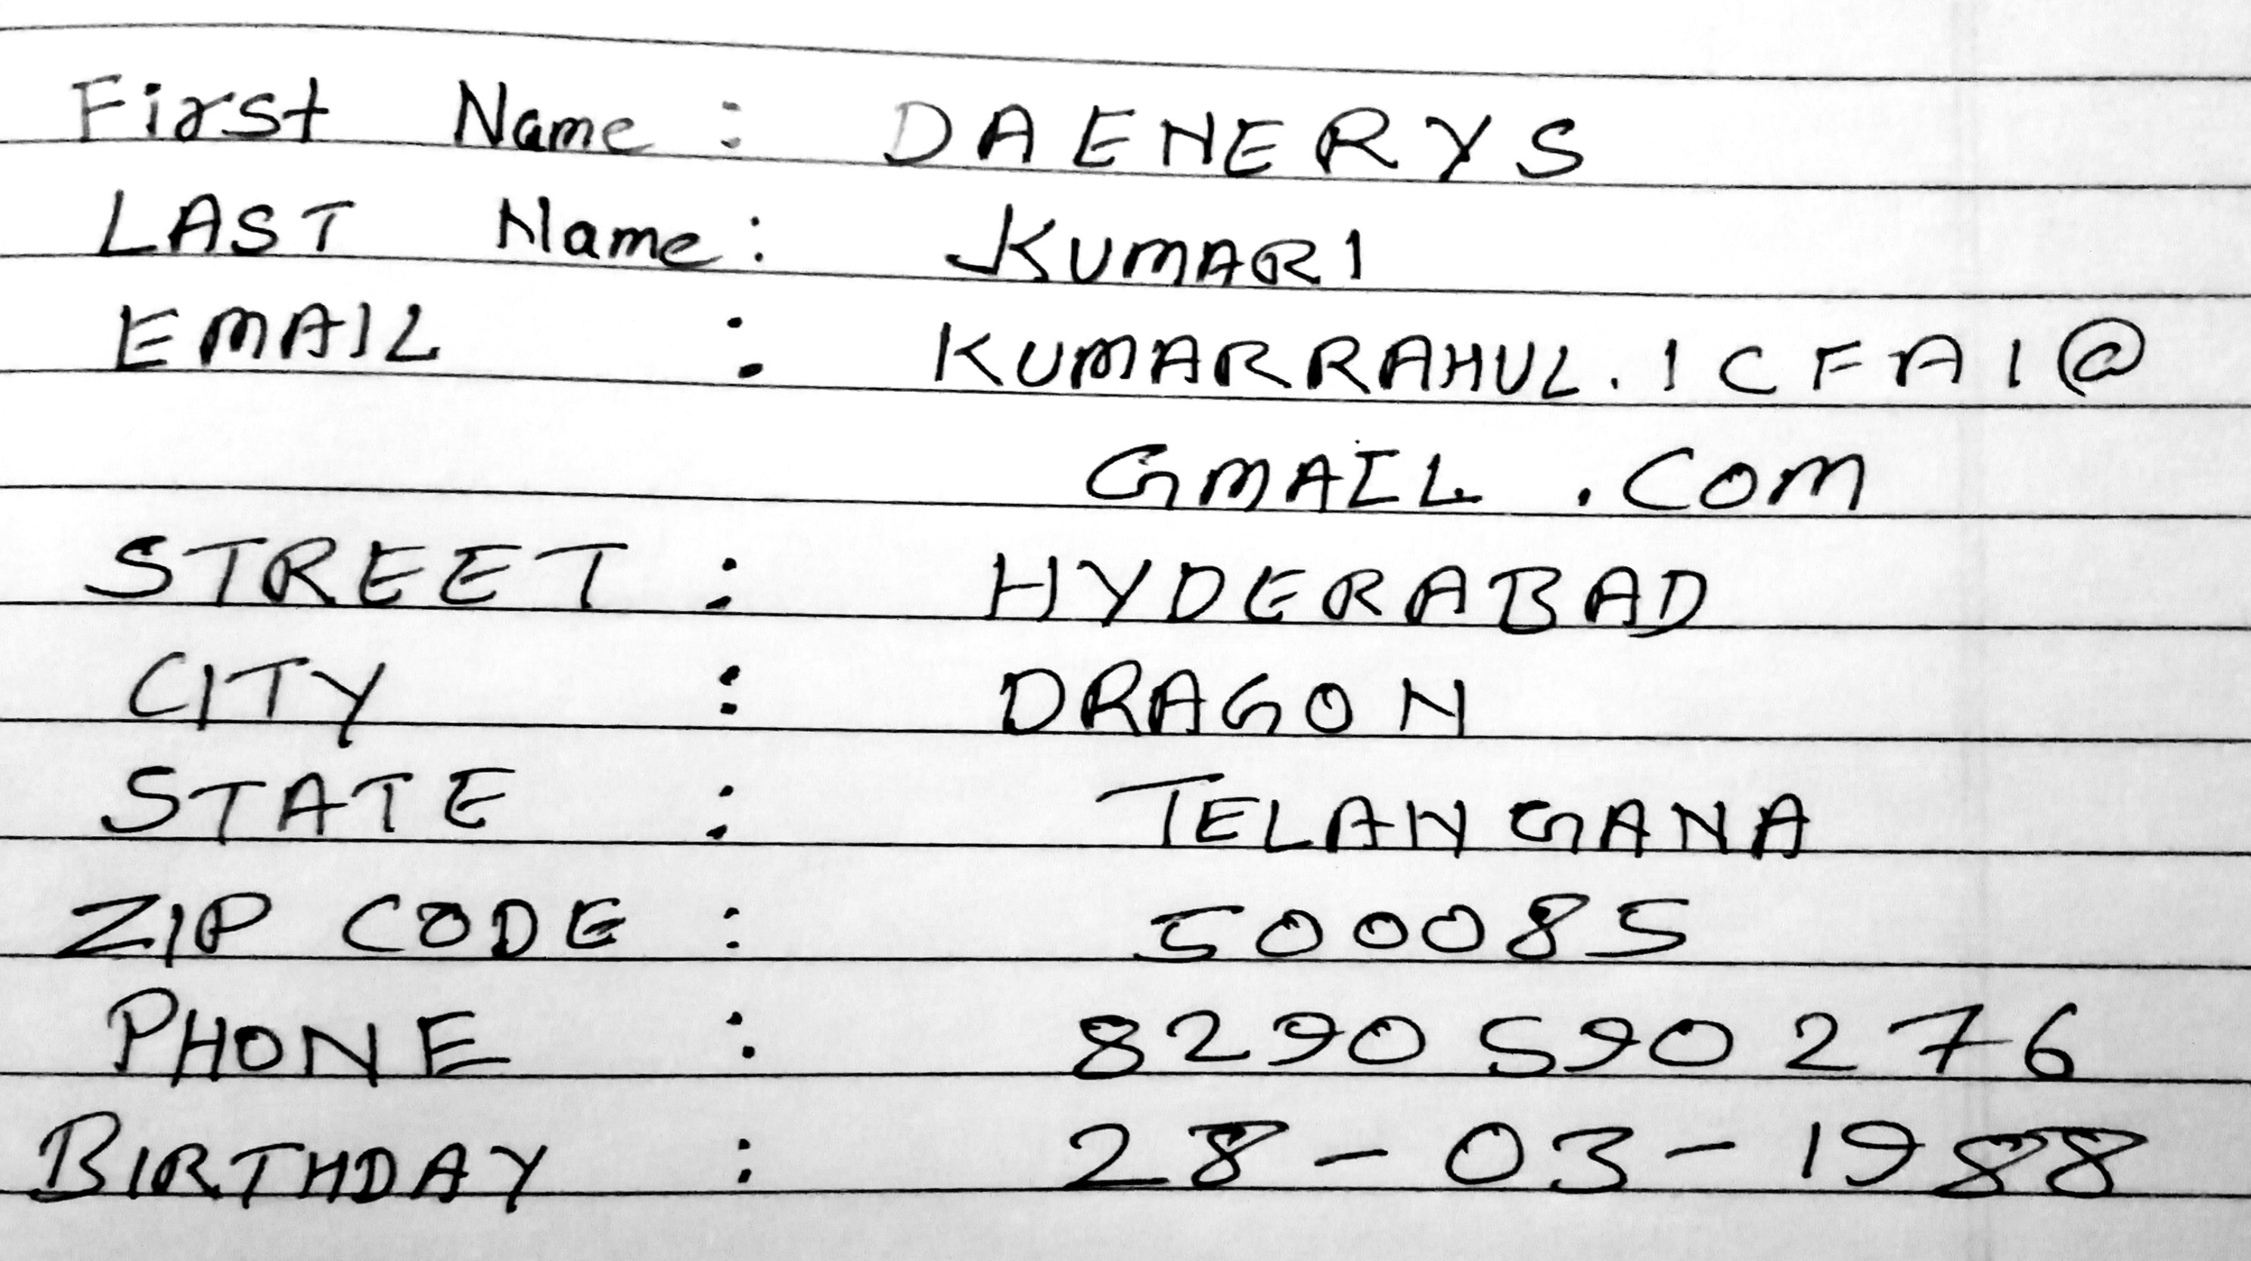 First Name : DAENERYS
LAST Name : KUMARI
EMAIL : KUMARRAHUL.ICFAI@
GMAIL.COM
STREET : HYDERABAD
CITY : DRAGON
STATE : TELANGANA
ZIP CODE : 500085
PHONE : 8290590276
BIRTHDAY : 28-03-1988